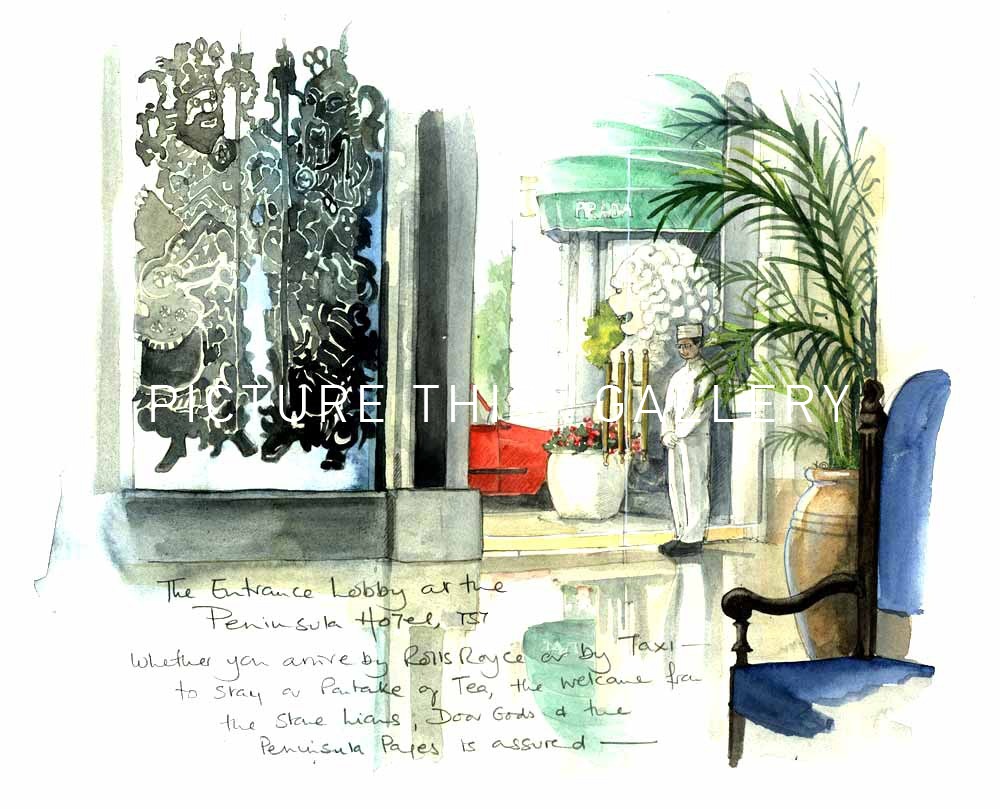 PRADA
PICTURE THIS GALLERY
The Entrance Lobby at the
Peninsula Hotel, TST
Whether you arrive by Rolls Royce or by Taxi —
to stay or Partake of Tea, the welcome from
the Stone Lions, Door Gods & the
Peninsula Pages is assured —